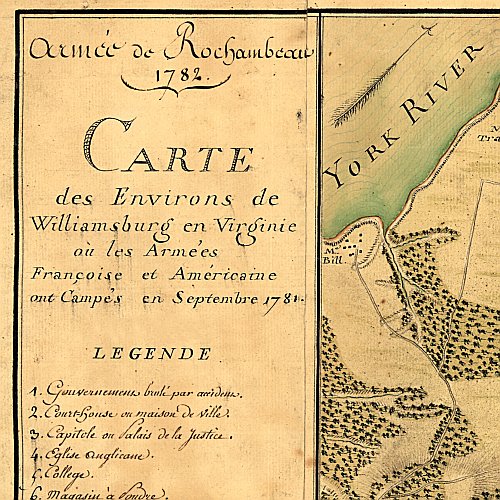 Armée de Rochambeau
1782.
CARTE
des Environs de
Williamsburg en Virginie
où les Armées
Françoise et Américaine
ont Campés en Septembre 1781.
LEGENDE
1. Gouvernement brulé par accident.
2. Court-House ou maison de ville.
3. Capitole ou Palais de la Justice.
4. Eglise Anglicane.
5. College.
6. Magasin à Poudre.
YORK RIVER
M
Tra
Mr.
Bill.